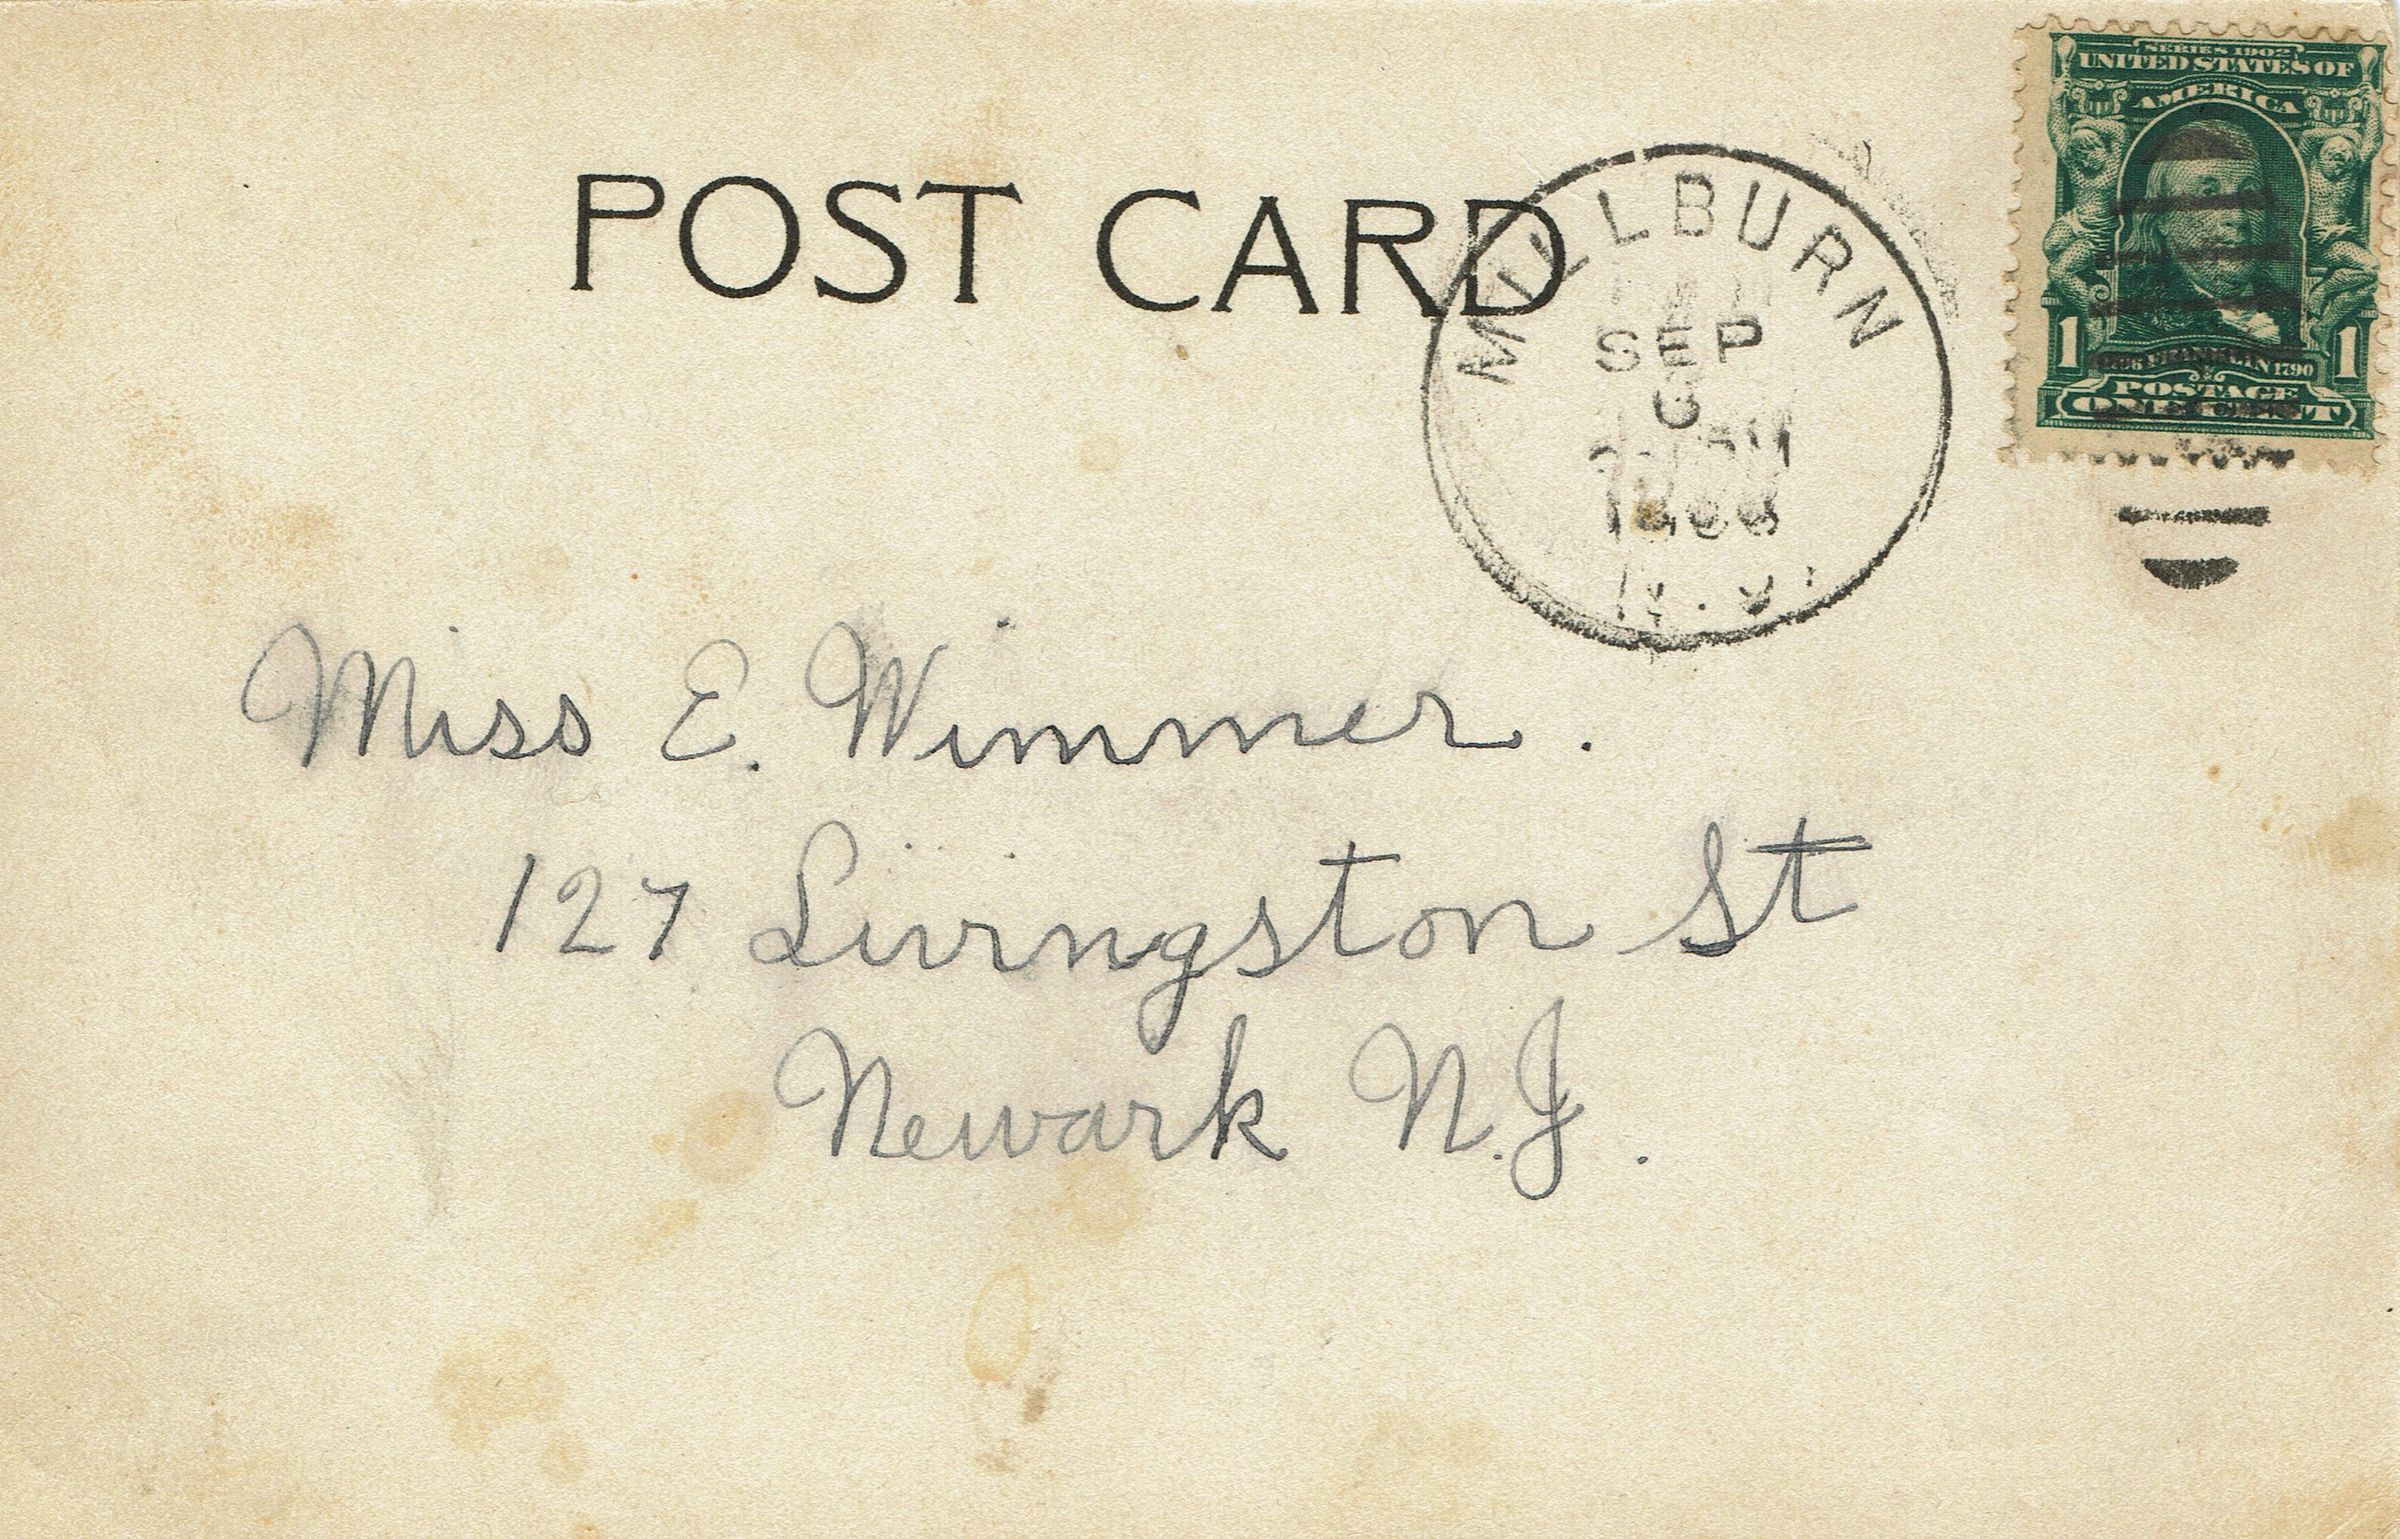 SERIES 1902
UNITED STATES OF
AMERICA
1 1
FRANKLIN 1790
POSTAGE
ONE CENT
POST CARD
MILLBURN
SEP
Miss E. Wimmer.
127 Livingston St
Newark N.J.